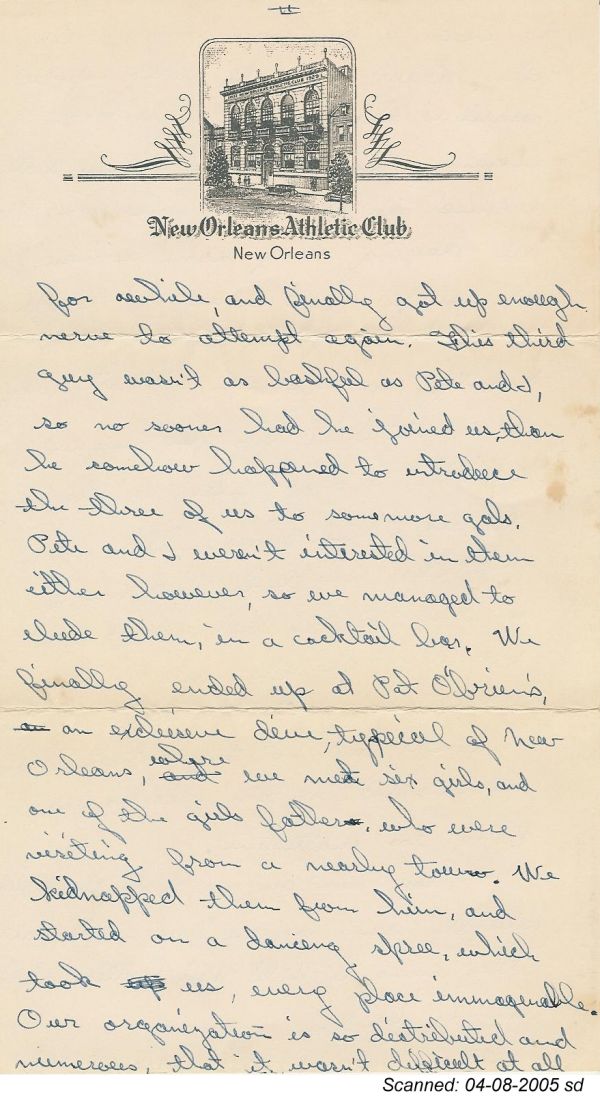 New Orleans Athletic Club
New Orleans
for awhile, and finally got up enough
nerve to attempt again. This third
guy wasn't as bashful as Pete and I,
so no sooner had he joined us, than
he somehow happened to introduce
the three of us to somemore gals.
Pete and I weren't interested in them
either however, so we managed to
elude them, in a cocktail bar. We
finally ended up at Pat O'Brien's,
an exclusive dive, typical of New
Orleans, where we met six girls, and
one of the girls father, who were
visiting from a nearby town. We
kidnapped them from him, and
started on a dancing spree, which
took us, every place immaginable.
Our organization is so distributed and
numerous, that it wasn't difficult at all
Scanned: 04-08-2005 sd